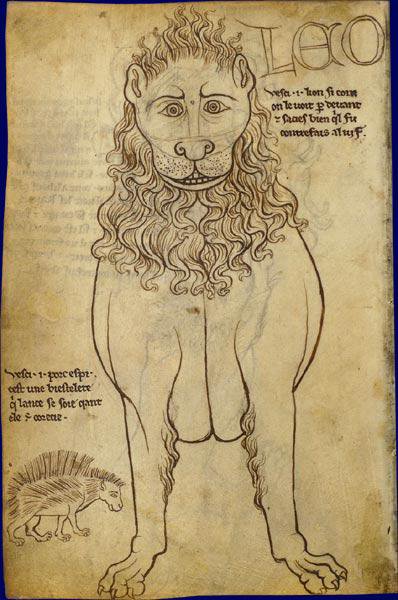 LEO
Vesci · i · lion si com
on le voit p devant
⁊ sacies bien ql fu
contrefais al vif.
Vesci · i · porc espi ·
cest une biestelete
q lance se soie qant
ele ⁊ corecie ·